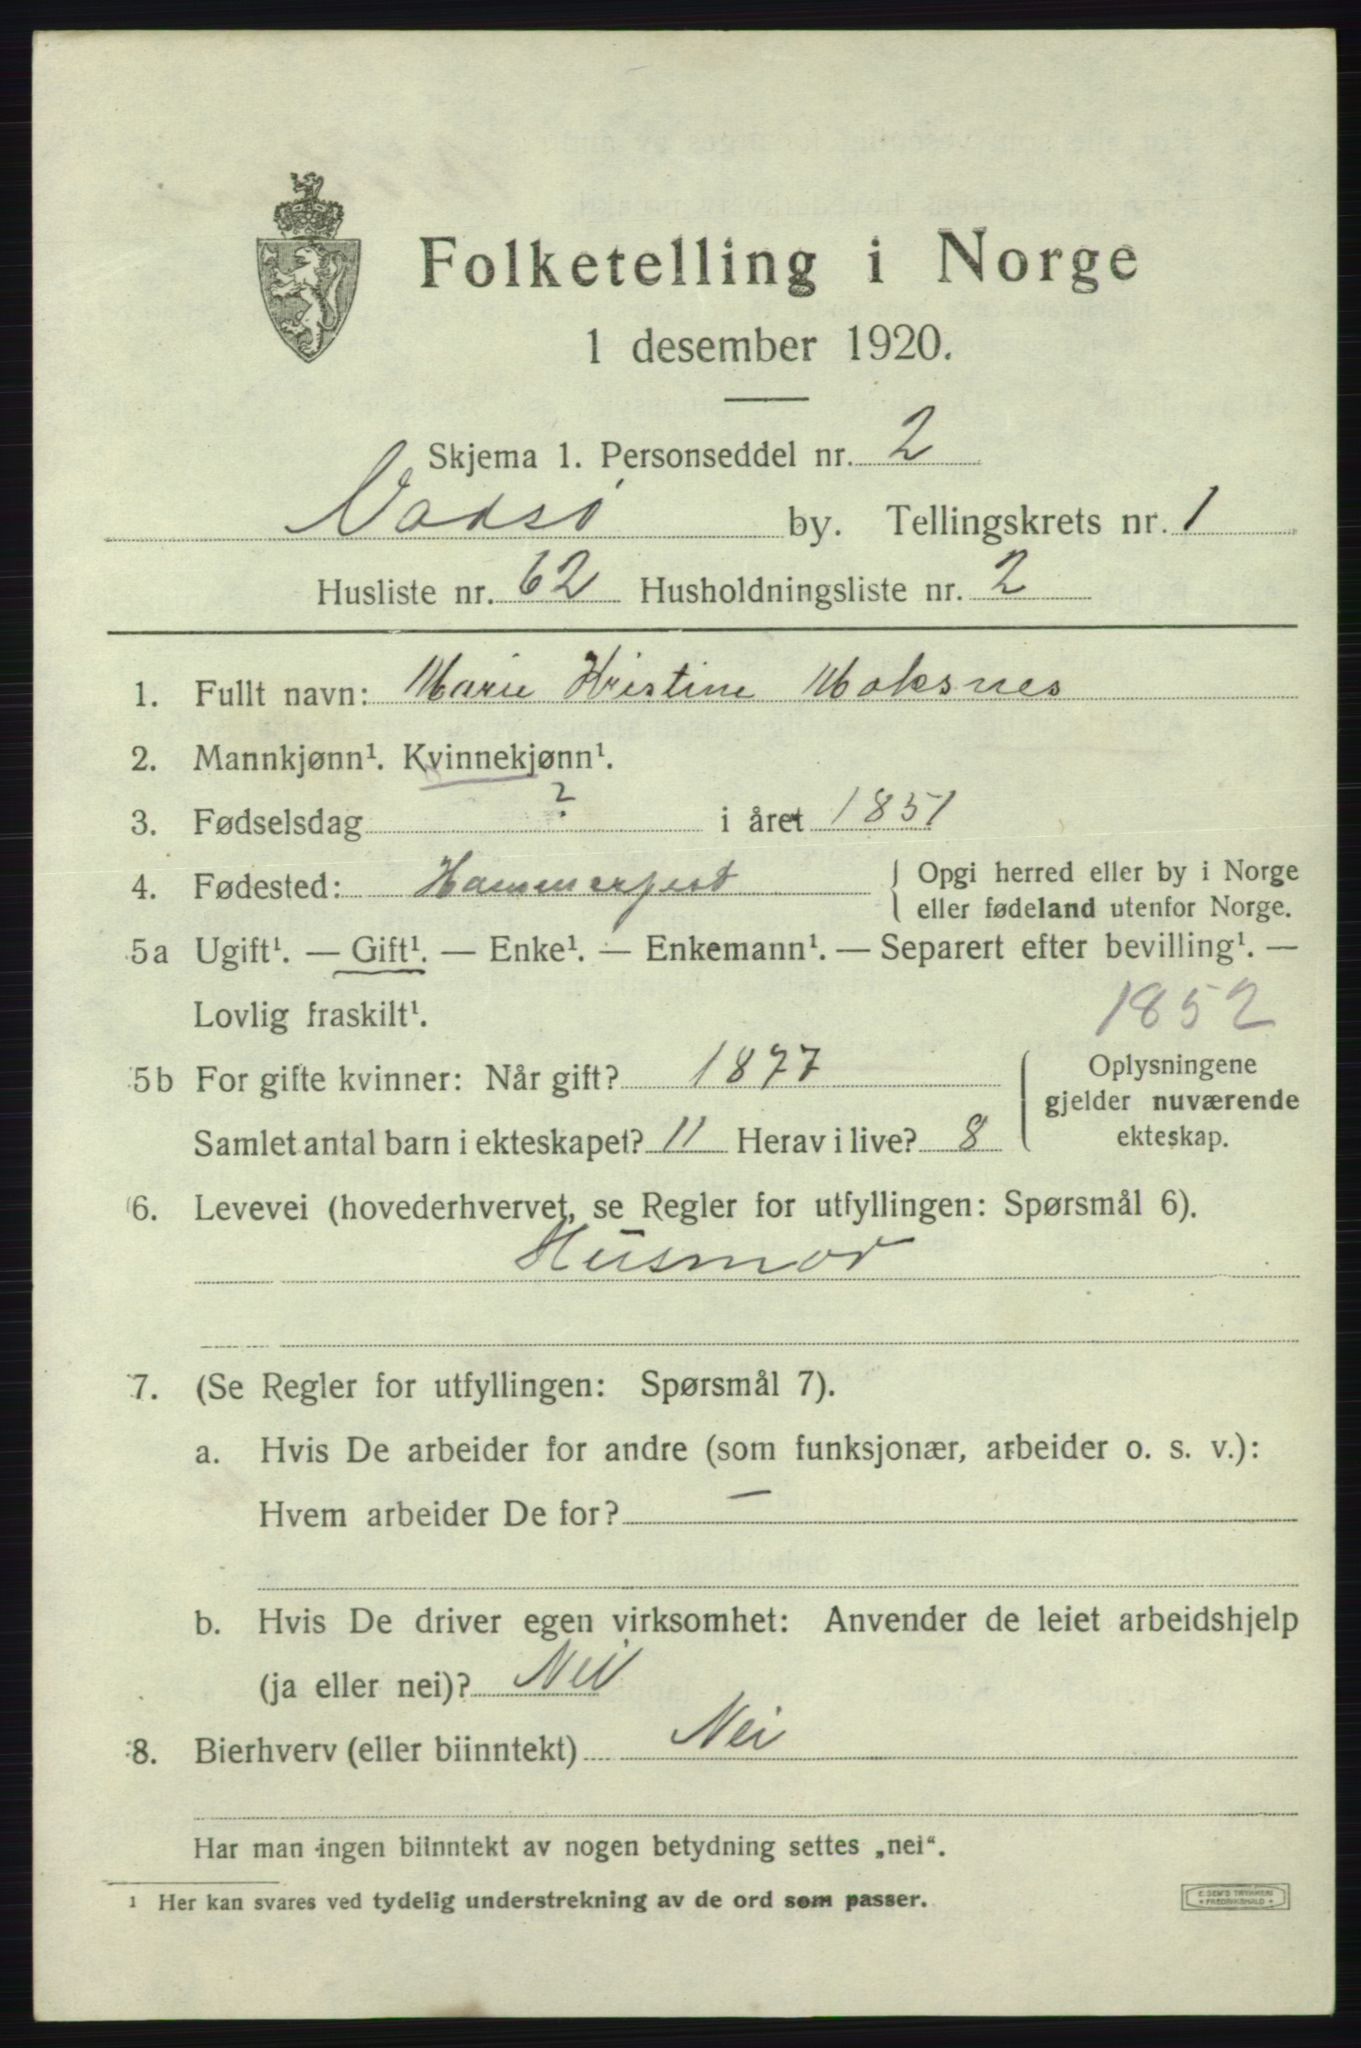 Folketelling i Norge
1 desember 1920.
Skjema 1. Personseddel nr. 2
Vadsø by. Tellingskrets nr. 1
Husliste nr. 62 Husholdningsliste nr. 2
1. Fullt navn: Marie Kristine Moksnes
2. Mannkjønn¹. Kvinnekjønn¹.
3. Fødselsdag ? i året 1851
4. Fødested: Hammerfest { Opgi herred eller by i Norge
eller fødeland utenfor Norge.
5a Ugift¹. — Gift¹. — Enke¹. — Enkemann¹. — Separert efter bevilling¹. —
Lovlig fraskilt¹. 1852
5b For gifte kvinner: Når gift? 1877 { Oplysningene
gjelder nuværende
Samlet antal barn i ekteskapet? 11 Herav i live? 8 ekteskap.
6. Levevei (hovederhvervet, se Regler for utfyllingen: Spørsmål 6).
Husmor
7. (Se Regler for utfyllingen: Spørsmål 7).
a. Hvis De arbeider for andre (som funksjonær, arbeider o. s. v.):
Hvem arbeider De for? —
b. Hvis De driver egen virksomhet: Anvender de leiet arbeidshjelp
(ja eller nei)? Nei
8. Bierhverv (eller biinntekt) Nei
Har man ingen biinntekt av nogen betydning settes „nei“.
1 Her kan svares ved tydelig understrekning av de ord som passer.
E. SEM'S TRYKKERI
* FREDRIKSHALD *